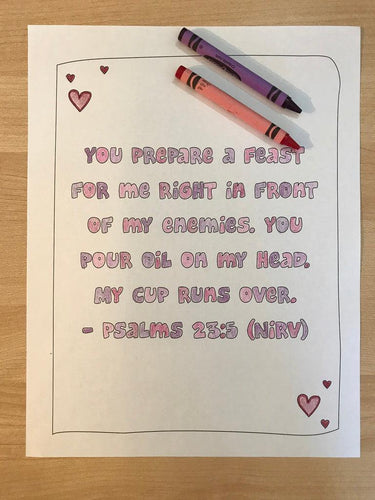 YOU PREPARE A FEAST
FOR ME RIGHT IN FRONT
OF MY ENEMIES. YOU
POUR OIL ON MY HEAD.
MY CUP RUNS OVER.
- PSALMS 23:5 (NIRV)